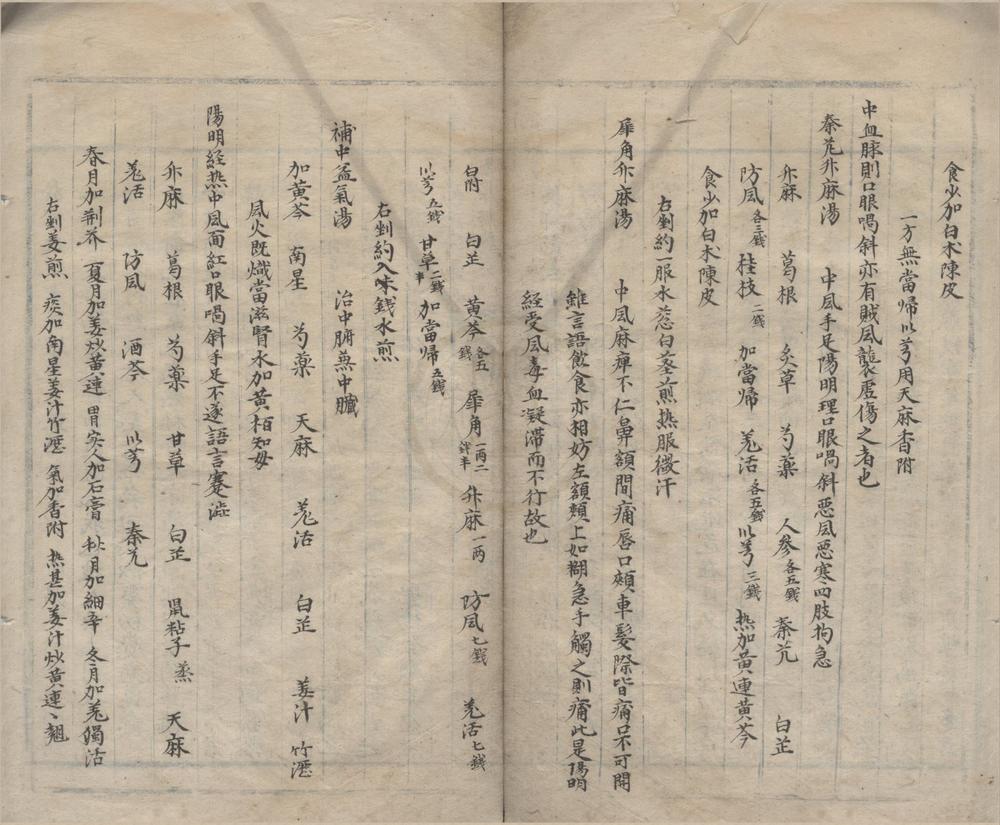 食少加白朮陳皮
一方無當歸以芎用天麻香附
中血脉則口眼喎斜亦有賊風襲虛傷之者也
秦芃升麻湯 中風手足陽明理口眼喎斜惡風惡寒四肢拘急
升麻 葛根 灸草 芍藥 人參各五錢 秦芃 白芷
防風各三錢 桂枝二錢 加當帰 羗活各五錢 以芎三錢 热加黄連黄芩
食少加白朮陳皮
右剉約一服水葱白茎煎热服微汗
犀角升麻湯 中風麻痺不仁鼻額間痛唇口頰車髮際皆痛口不可開
雖言語飲食亦相妨左額頰上如糊急手觸之則痛此是陽明
経受風毒血凝滞而不行故也
白附 白芷 黄芩各五錢 犀角一両二戔半 升麻一両 防風七錢 羗活七錢
以芎五錢 甘草二錢半 加當帰五錢
右剉約入味錢水煎
補中益氣湯 治中腑兼中臟
加黄芩 南星 芍藥 天麻 羗活 白芷 姜汁 竹瀝
風火既熾當滋腎水加黄栢知母
陽明経热中風面紅口眼喎斜手足不遂語言蹇澁
升麻 葛根 芍藥 甘草 白芷 鼠粘子蒸 天麻
羗活 防風 酒芩 以芎 秦芃
春月加荆芥 夏月加姜炒黄連 胃实人加石膏 秋月加細辛 冬月加羗獨活
右剉姜煎 痰加南星姜汁竹瀝 氣加香附 热甚加姜汁炒黄連、翹